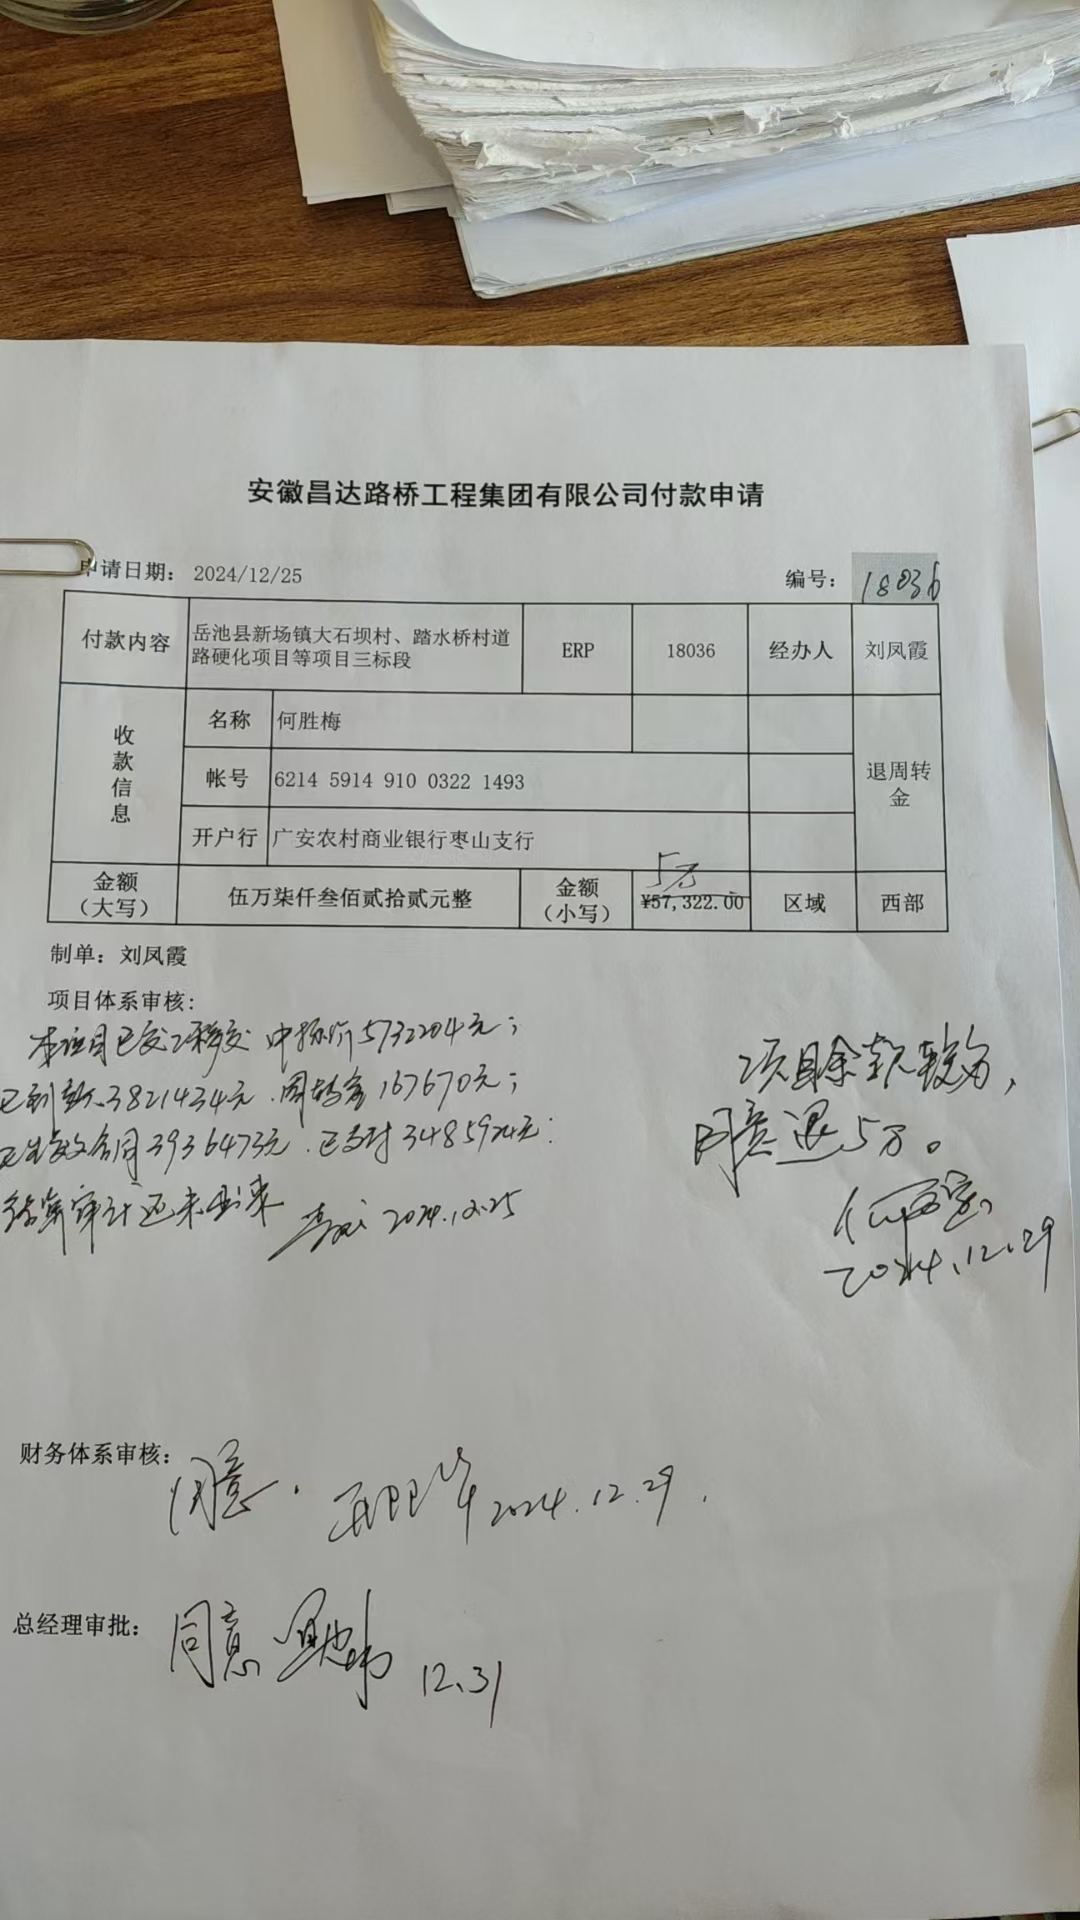 安徽昌达路桥工程集团有限公司付款申请
申请日期： 2024/12/25
编号： 18036
付款内容 岳池县新场镇大石坝村、踏水桥村道路硬化项目等项目三标段 ERP 18036 经办人 刘凤霞
收款信息 名称 何胜梅
帐号 6214 5914 910 0322 1493
退周转金
开户行 广安农村商业银行枣山支行
5万
金额（大写） 伍万柒仟叁佰贰拾贰元整 金额（小写） ¥57,322.00 区域 西部
制单： 刘凤霞
项目体系审核:
本项目已交工移交 中标价5732204元；
已到款3821434元．周转金167670元；
已生效合同3936473元．已支付3485924元：
结算审计还未出来 2024.12.25
项目余款较多，
同意退5万。
2024.12.29
财务体系审核： 同意． 2024.12.29．
总经理审批： 同意 12.31